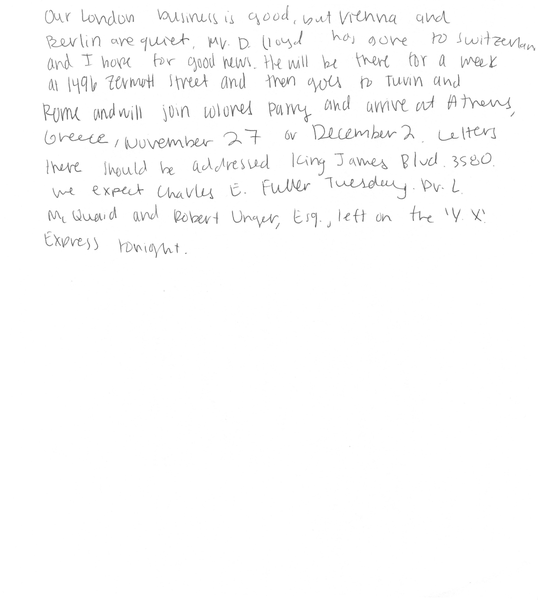 Our London business is good, but Vienna and
Berlin are quiet. Mr. D. Lloyd has gone to Switzerland
and I hope for good news. He will be there for a week
at 1496 Zermott Street and then goes to Turin and
Rome and will join Colonel Parry and arrive at Athens,
Greece, November 27 or December 2. Letters
there should be addressed King James Blvd. 3580.
We expect Charles E. Fuller Tuesday. Dr. L.
McQuaid and Robert Unger, Esq., left on the 'Y. X.'
Express tonight.